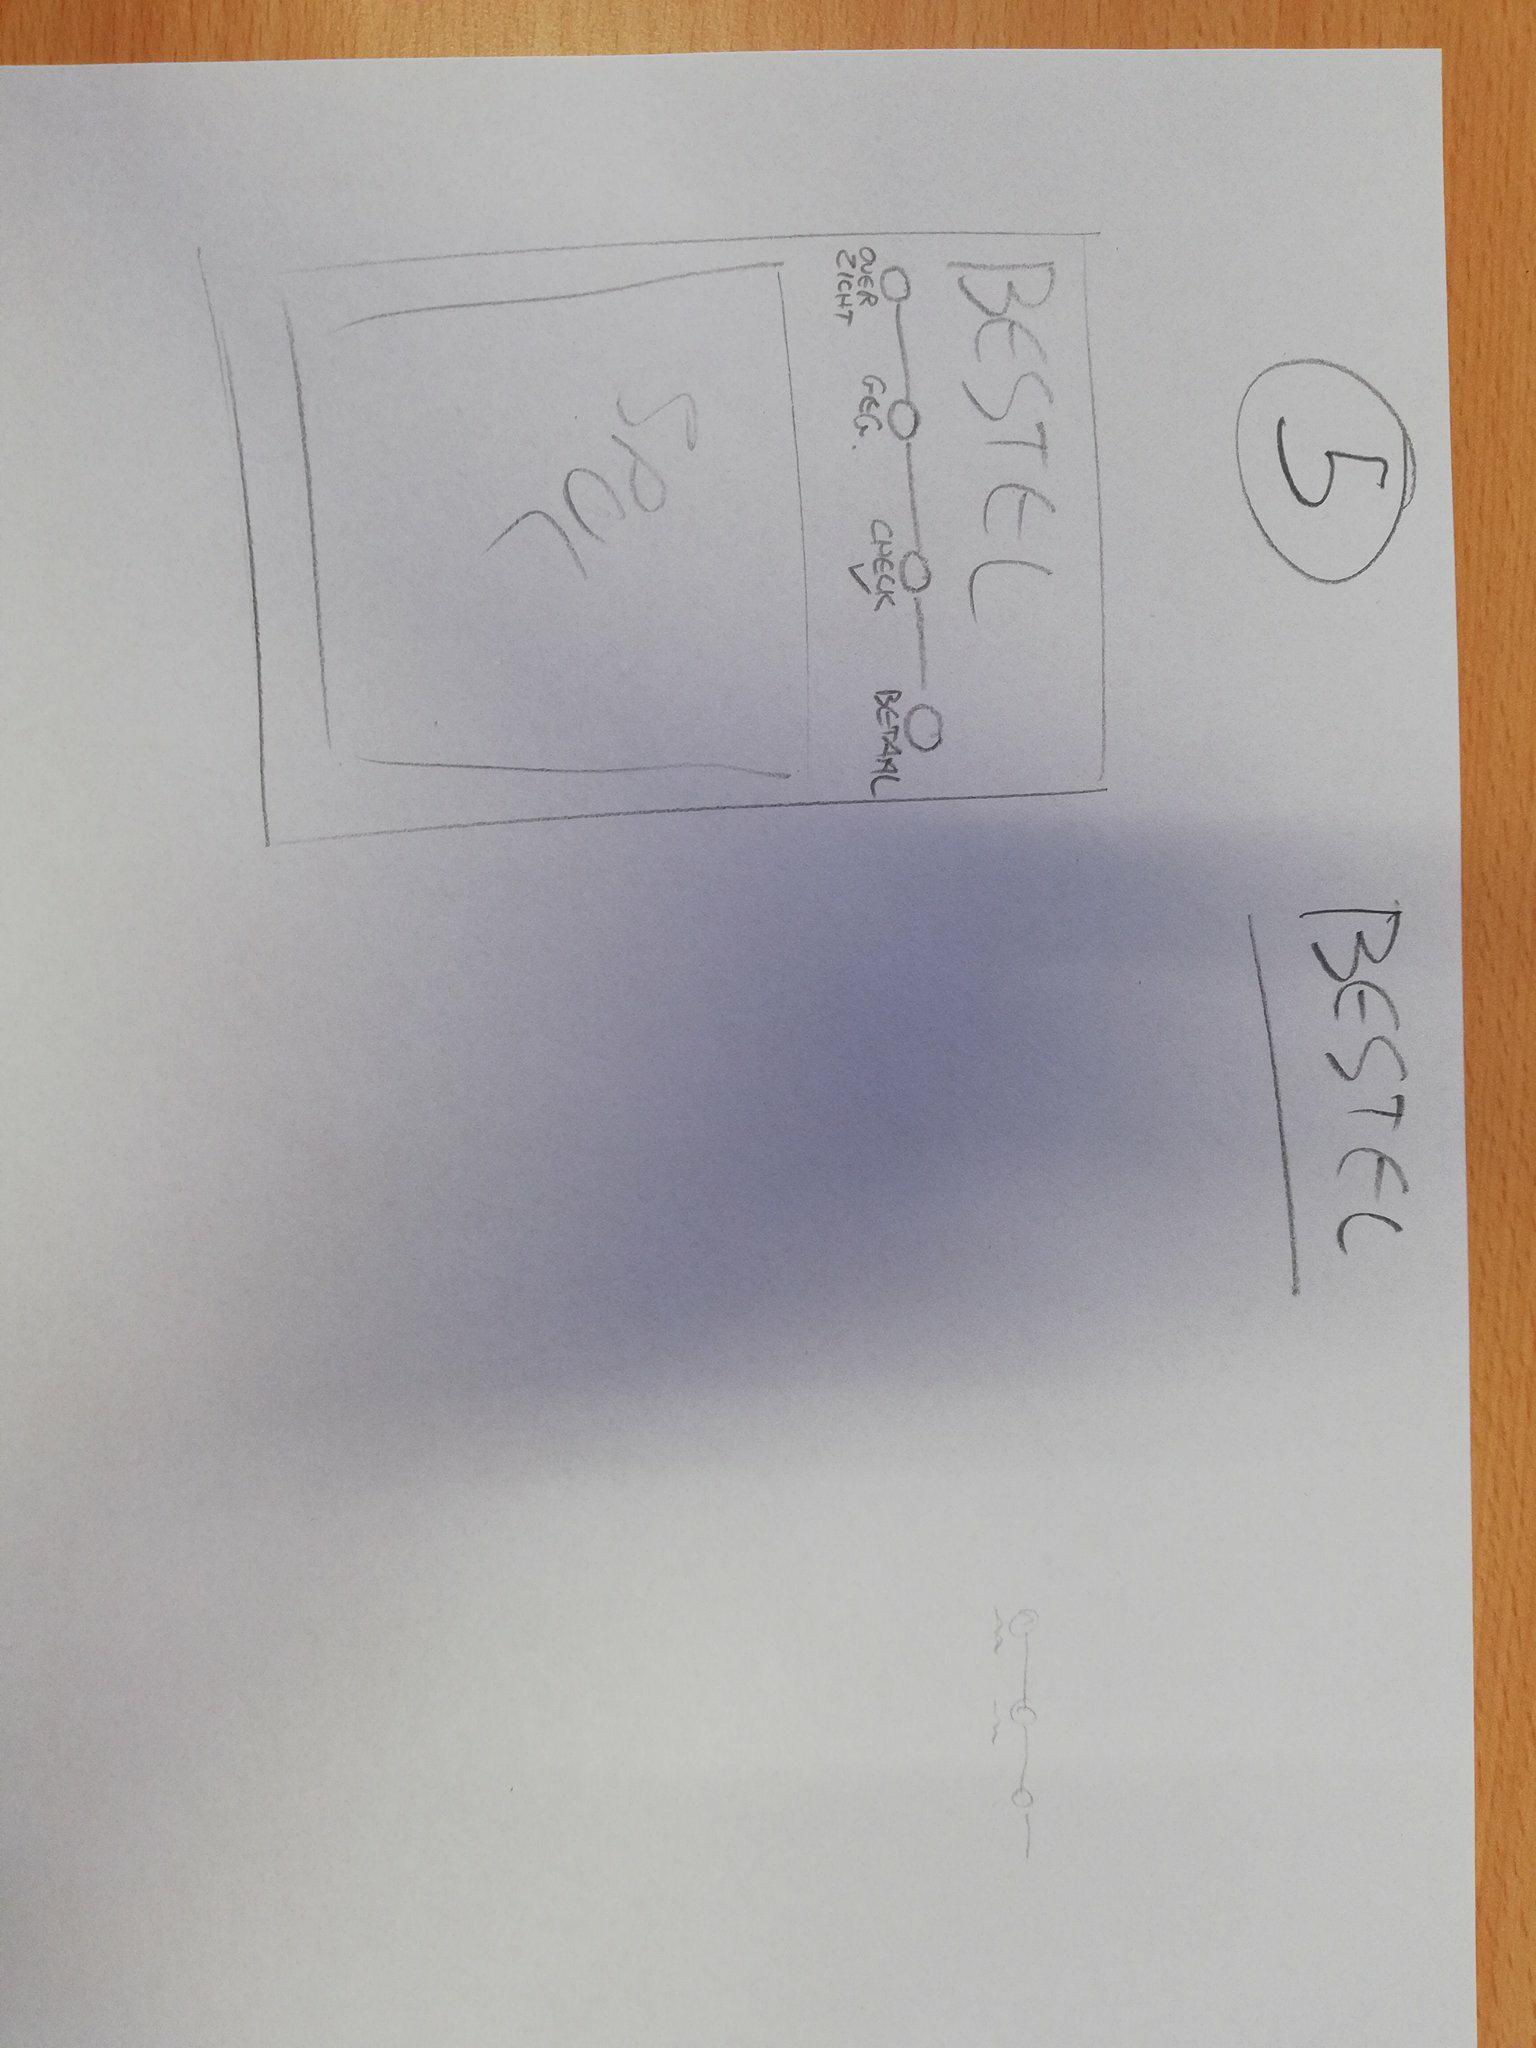 5
BESTEL
BESTEL
OVER
ZICHT
GEG.
CHECK
BETAAL
SPUL